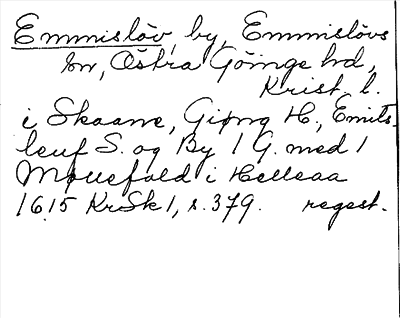 Emmislöv, by, Emmislövs
sn, Östra Göinge hd,
Krist. l.
i Skaane, Giøng H., Emits-
leuf S. og By 1 G. med 1
Møllefald i Helleaa
1615 KrSk 1, s. 379. regest.